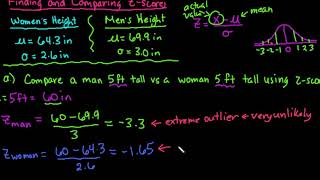 Finding and Comparing Z-Scores
Women's Height
μ = 64.3 in
σ = 2.6 in
Men's Height
μ = 69.9 in
σ = 3.0 in
actual value
z = x - μ / σ
mean
-3 -2 -1 0 1 2 3
a) Compare a man 5ft tall vs a woman 5ft tall using z-sco
5ft = 60 in
z man = 60 - 69.9 / 3 = -3.3 ← extreme outlier ← very unlikely
z woman = 60 - 64.3 / 2.6 = -1.65 ←